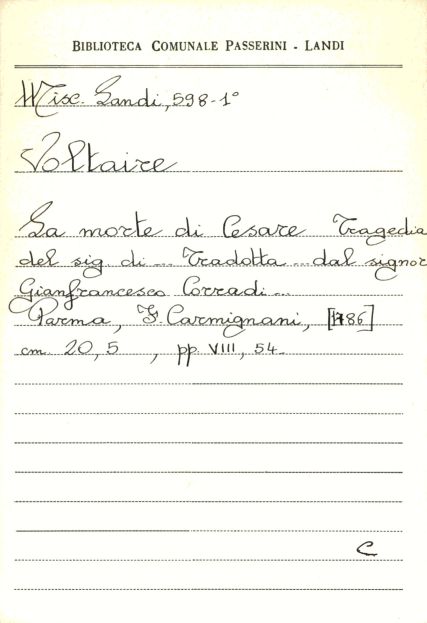 BIBLIOTECA COMUNALE PASSERINI - LANDI
Misc. Landi, 598-1°
Voltaire
La morte di Cesare Tragedia
del sig. di ... Tradotta ... dal signor
Gianfrancesco Corradi ...
Parma, F. Carmignani, [1786]
cm. 20,5 , pp. VIII, 54.
C